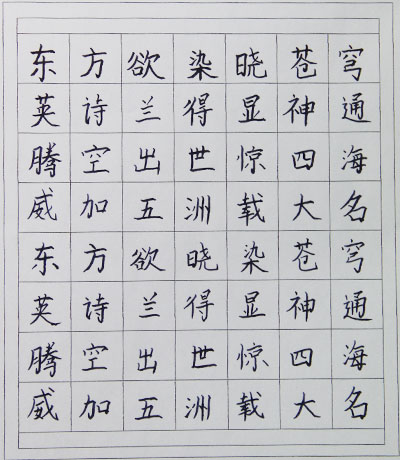 东方欲染晓苍穹
英诗兰得显神通
腾空出世惊四海
威加五洲载大名
东方欲晓染苍穹
英诗兰得显神通
腾空出世惊四海
威加五洲载大名